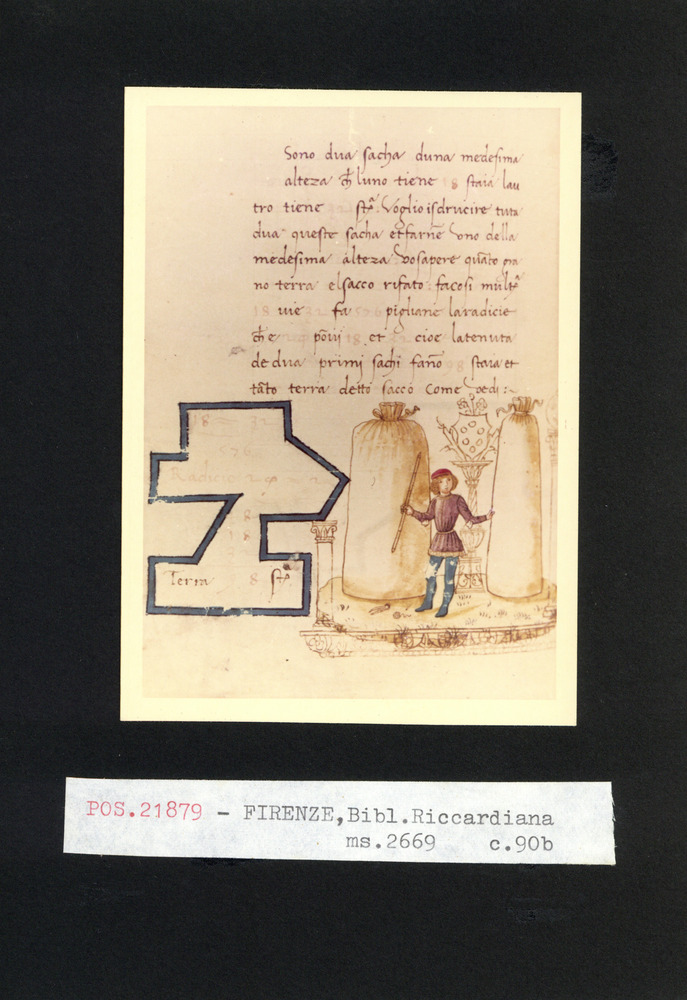 Sono dua sacha duna medesima
alteza ch̄ luno tiene 18 staia lau
tro tiene stᵃ. Voglio isdrucire tuta
dua queste sacha et farnē uno della
medesima alteza vosapere quāto gra
no terra elsacco rifato: facosi multᵃ
18 uie 32 fa 576 pigliane laradicie
ch̄ e et cioe latenuta
de dua primi sachi fanō 98 staia et
tāto terra detto sacco come vedi:~
18 32
576
Radicie
18
Terra 8 stᵃ
POS.21879 - FIRENZE,Bibl.Riccardiana
ms.2669 c.90b